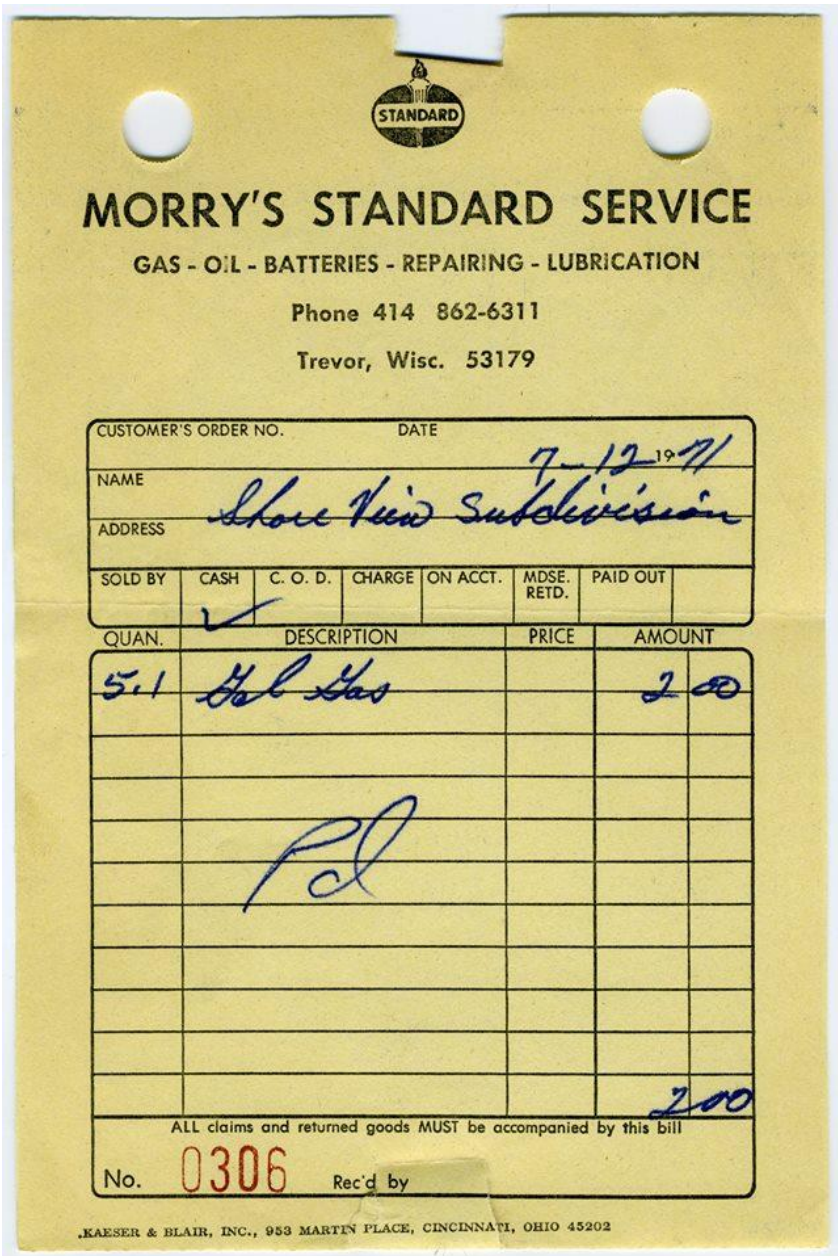 STANDARD
MORRY'S STANDARD SERVICE
GAS - OIL - BATTERIES - REPAIRING - LUBRICATION
Phone 414 862-6311
Trevor, Wisc. 53179
CUSTOMER'S ORDER NO. DATE 7-12 1971
NAME Shore View Subdivision
ADDRESS
SOLD BY CASH C. O. D. CHARGE ON ACCT. MDSE. RETD. PAID OUT
✓
QUAN. DESCRIPTION PRICE AMOUNT
5.1 Gal Gas 2 00
Pd
2 00
ALL claims and returned goods MUST be accompanied by this bill
No. 0306 Rec'd by
KAESER & BLAIR, INC., 953 MARTIN PLACE, CINCINNATI, OHIO 45202